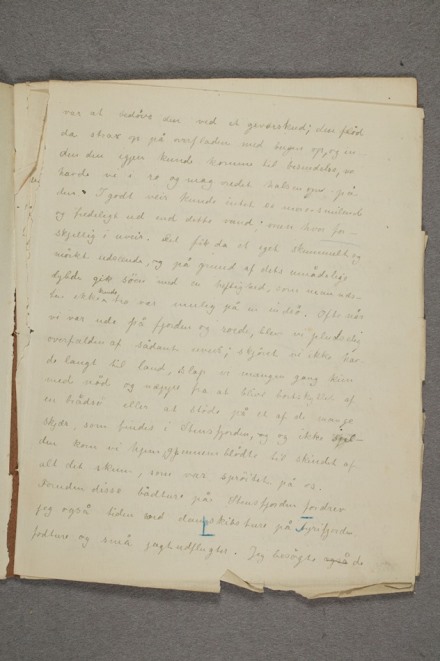 var at bedöve den ved et geværskud; den flöd
da strax op på overfladen med bugen op, og in-
den den igjen kunde komme til besindelse,
havde vi i ro og mag
den. I godt veir kunde intet se mere smilende
og fredeligt ud end dette vand; men hvor for-
skjellig i uveir. Det fik da et eget skummelt og
mörkt udseende, og på grund af dets umådelige
dybde gik söen med en heftighed, som man
ikke kunde tro var mulig på en indsö. Ofte når
vi var ude på fjorden og roede, blev vi pludselig
overfalden af sådant uveir; skjönt vi ikke hav-
de langt til land, slap vi mangen gang kun
med nöd og neppe fra at blive bortskyllet af
en brådsö eller at stöde på et af de mange
skjær, som findes i Stensfjorden, og ikke sjel-
den kom vi hjem gjennemblödte til skindet af
alt det skum, som var spröitet på os.
Foruden disse bådture på Stensfjorden fordrev
jeg også tiden med dampskibsture på Tyrifjorden
fodture og små jagtudflugter. Jeg besögte også de